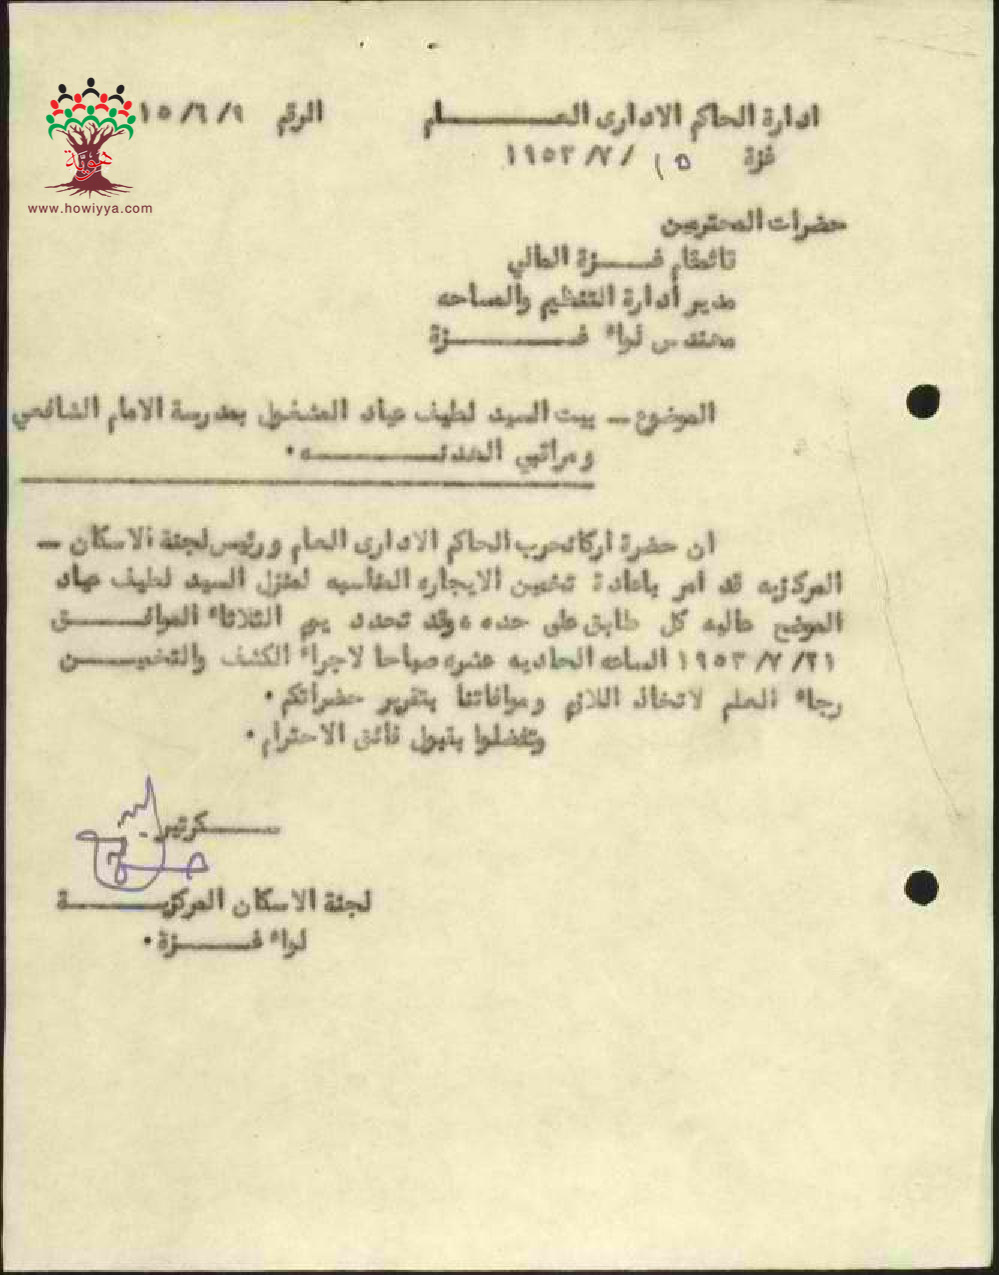 ادارة الحاكم الادارى العــــــــام الرقم ١٥/٦/٩
غزة ١٥ /٧/ ١٩٥٣
هوية
www.howiyya.com
حضرات المحترمين
قائمقام غــــزة المالي
مدير أدارة التنظيم والمساحه
مهندس لواء غــــــــــــزة
الموضوع ــ بيت السيد لطيف عياد المشغول بمدرسة الامام الشافعي
ومراقبي الهدنــــــــــه ٠
ان حضرة اركانحرب الحاكم الادارى العام ورئيس لجنة الاسكان ــ
المركزيه قد امر باعادة تخمين الايجاره المناسبه لمنزل السيد لطيف عياد
الموضح عاليه كل طابق على حده ، وقد تحدد يوم الثلاثاء الموافــــــق
٢١/ ٧/ ١٩٥٣ الساعه الحاديه عشره صباحا لاجراء الكشف والتخميــــن
رجاء العلم لاتخاذ اللازم وموافاتنا بتقرير حضراتكم ٠
وتفضلوا بقبول فائق الاحترام ٠
ســــــكرتير
لجنة الاسكان المركزيــــــــة
لواء غـــــــزة ٠